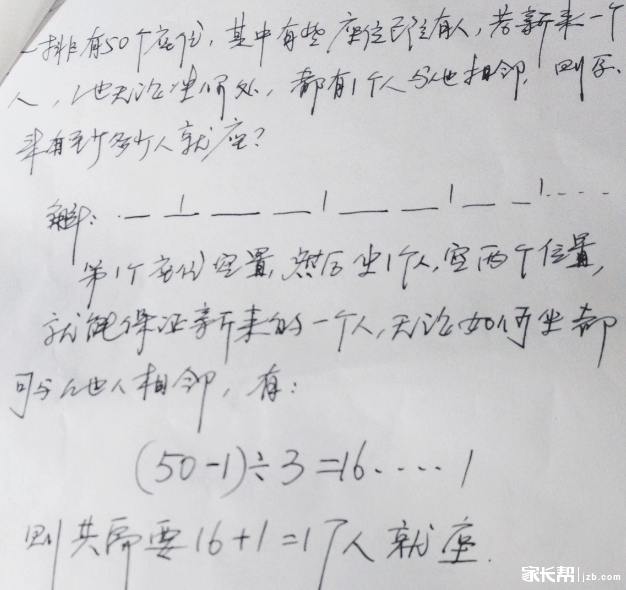 一排有50个座位，其中有些座位已经有人，若新来一个
人，他无论坐何处，都有1个人与他相邻，则原
来有至少多少人就座？
解：— 1 — — 1 — — 1 — — 1 ....
第1个座位空置，然后坐1个人，空两个位置，
就能保证新来的一个人，无论如何坐都
可与他人相邻，有：
(50-1)÷3=16.....1
则共需要16+1=17人就座.
家长帮 jzb.com